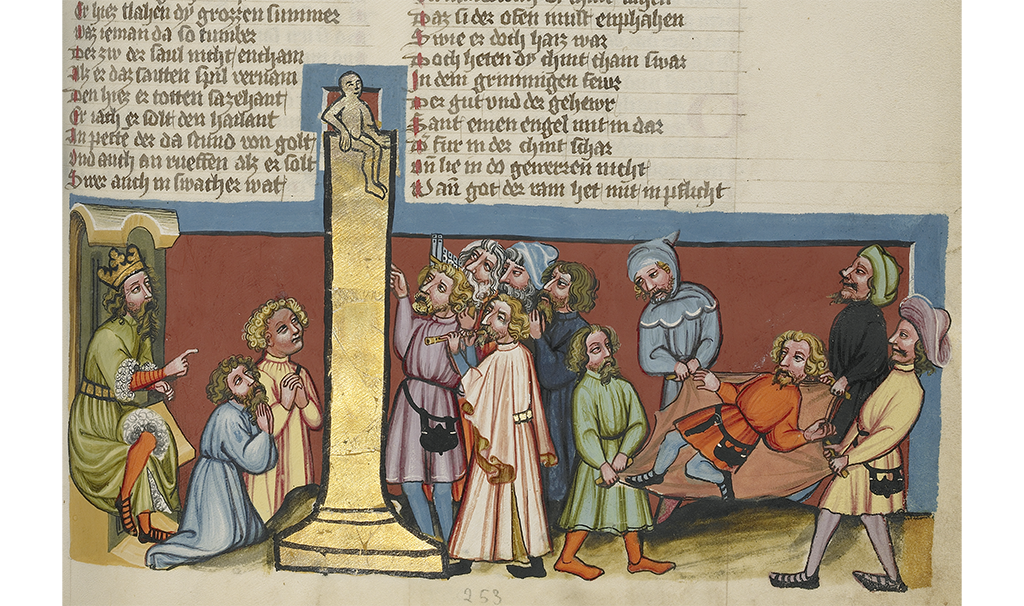 Er hiez slahen dy grozzen summer
Waz ieman da so tumber
Der zw der saul nicht encham
Alz er daz sauten spil vernam
Den hiez er totten sazehant
Er iach er solt den hailant
An pette der da stund von golt
Und auch an rueffen alz er solt
Swer auch in swacher wat
Daz si der ofen must enphahen
Swie er doch haiz war
Doch heten dy chint chain swar
In dem grimmigen feur
Der gut vnd der gehewr
Sant einen engel mit in dar
Do fur in der chint schar
Vn̄ lie in do gewerren nicht
Wan̄ got der ram het mit in pflicht
253